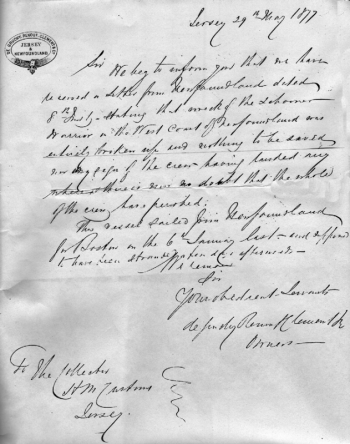 Jersey 29th May 1877
DE GRUCHY RENOUF CLEMENT & Co
JERSEY
&
NEWFOUNDLAND
Sir
We beg to inform you that we have
received a letter from Newfoundland dated
8th stating that wreck of the Schooner
Warrior on the West Coast of Newfoundland was
entirely broken up and nothing to be saved
nor any sign of the crew having landed any
where there is now no doubt that the whole
of the crew has perished.
This vessel sailed from Newfoundland
for Boston on the 6th January last and
to have been stranded days afterwards
We remain
Sir
Your obedient Servants
de Gruchy Renouf Clement & Co
Owners
To The Collector
H M Customs
Jersey